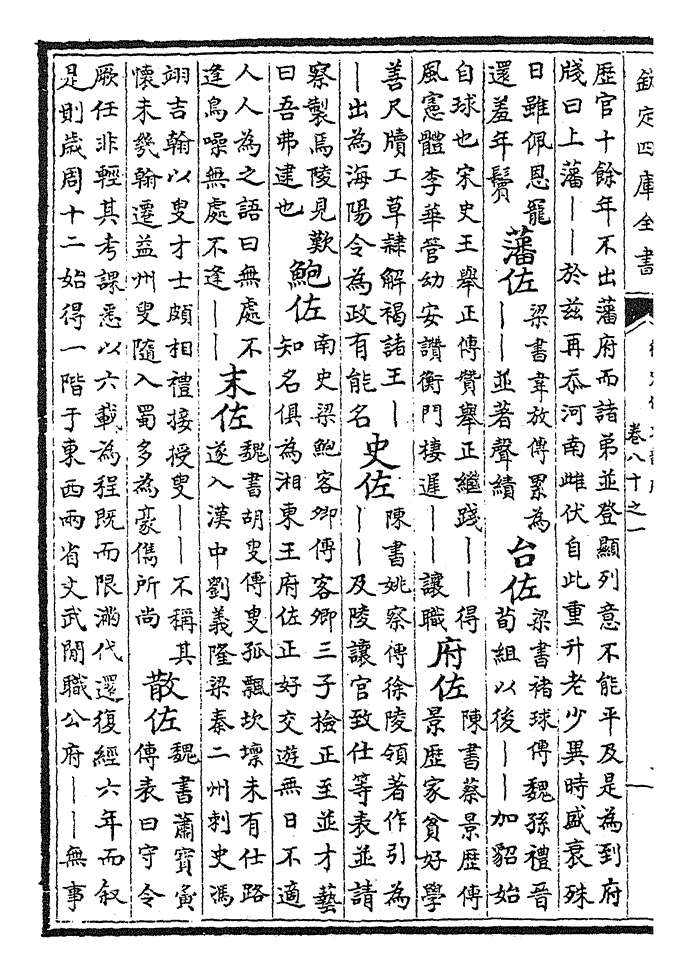 欽定四庫全書
卷八十之一
歴官十餘年不出藩府而諸弟並登顯列意不能平及是為到府
牋曰上藩丨丨於兹再忝河南雌伏自此重升老少異時盛衰殊
日雖佩恩寵
還羞年鬢
藩佐
梁書韋放傳累為
丨丨並著聲績
台佐
梁書褚球傳魏孫禮晉
荀組以後丨丨加貂始
自球也宋史王舉正傳贊舉正繼踐丨丨得
風憲體李華管幼安讚衡門棲遲丨丨讓職
府佐
陳書蔡景歴傳
景歴家貧好學
善尺牘工草隷解褐諸王丨
丨出為海陽令為政有能名
史佐
陳書姚察傳徐陵領著作引為
丨丨及陵讓官致仕等表並請
察製焉陵見歎
曰吾弗逮也
鮑佐
南史梁鮑客卿傳客卿三子檢正至並才藝
知名俱為湘東王府佐正好交遊無日不適
人人為之語曰無處不
逢烏噪無處不逢丨丨
末佐
魏書胡叟傳叟孤飄坎壈未有仕路
遂入漢中劉義隆梁秦二州刺史馮
翊吉翰以叟才士頗相禮接授叟丨丨不稱其
懷未幾翰遷益州叟隨入蜀多為豪儁所尚
散佐
魏書蕭寶夤
傳表曰守令
厥任非輕其考課悉以六載為程既而限滿代還復經六年而叙
是則歳周十二始得一階于東西兩省文武閒職公府丨丨無事